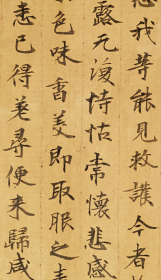 我等能見救護今者
露无復恃怙常懷悲感
色味香美即取服之
悉已得差尋便來歸咸